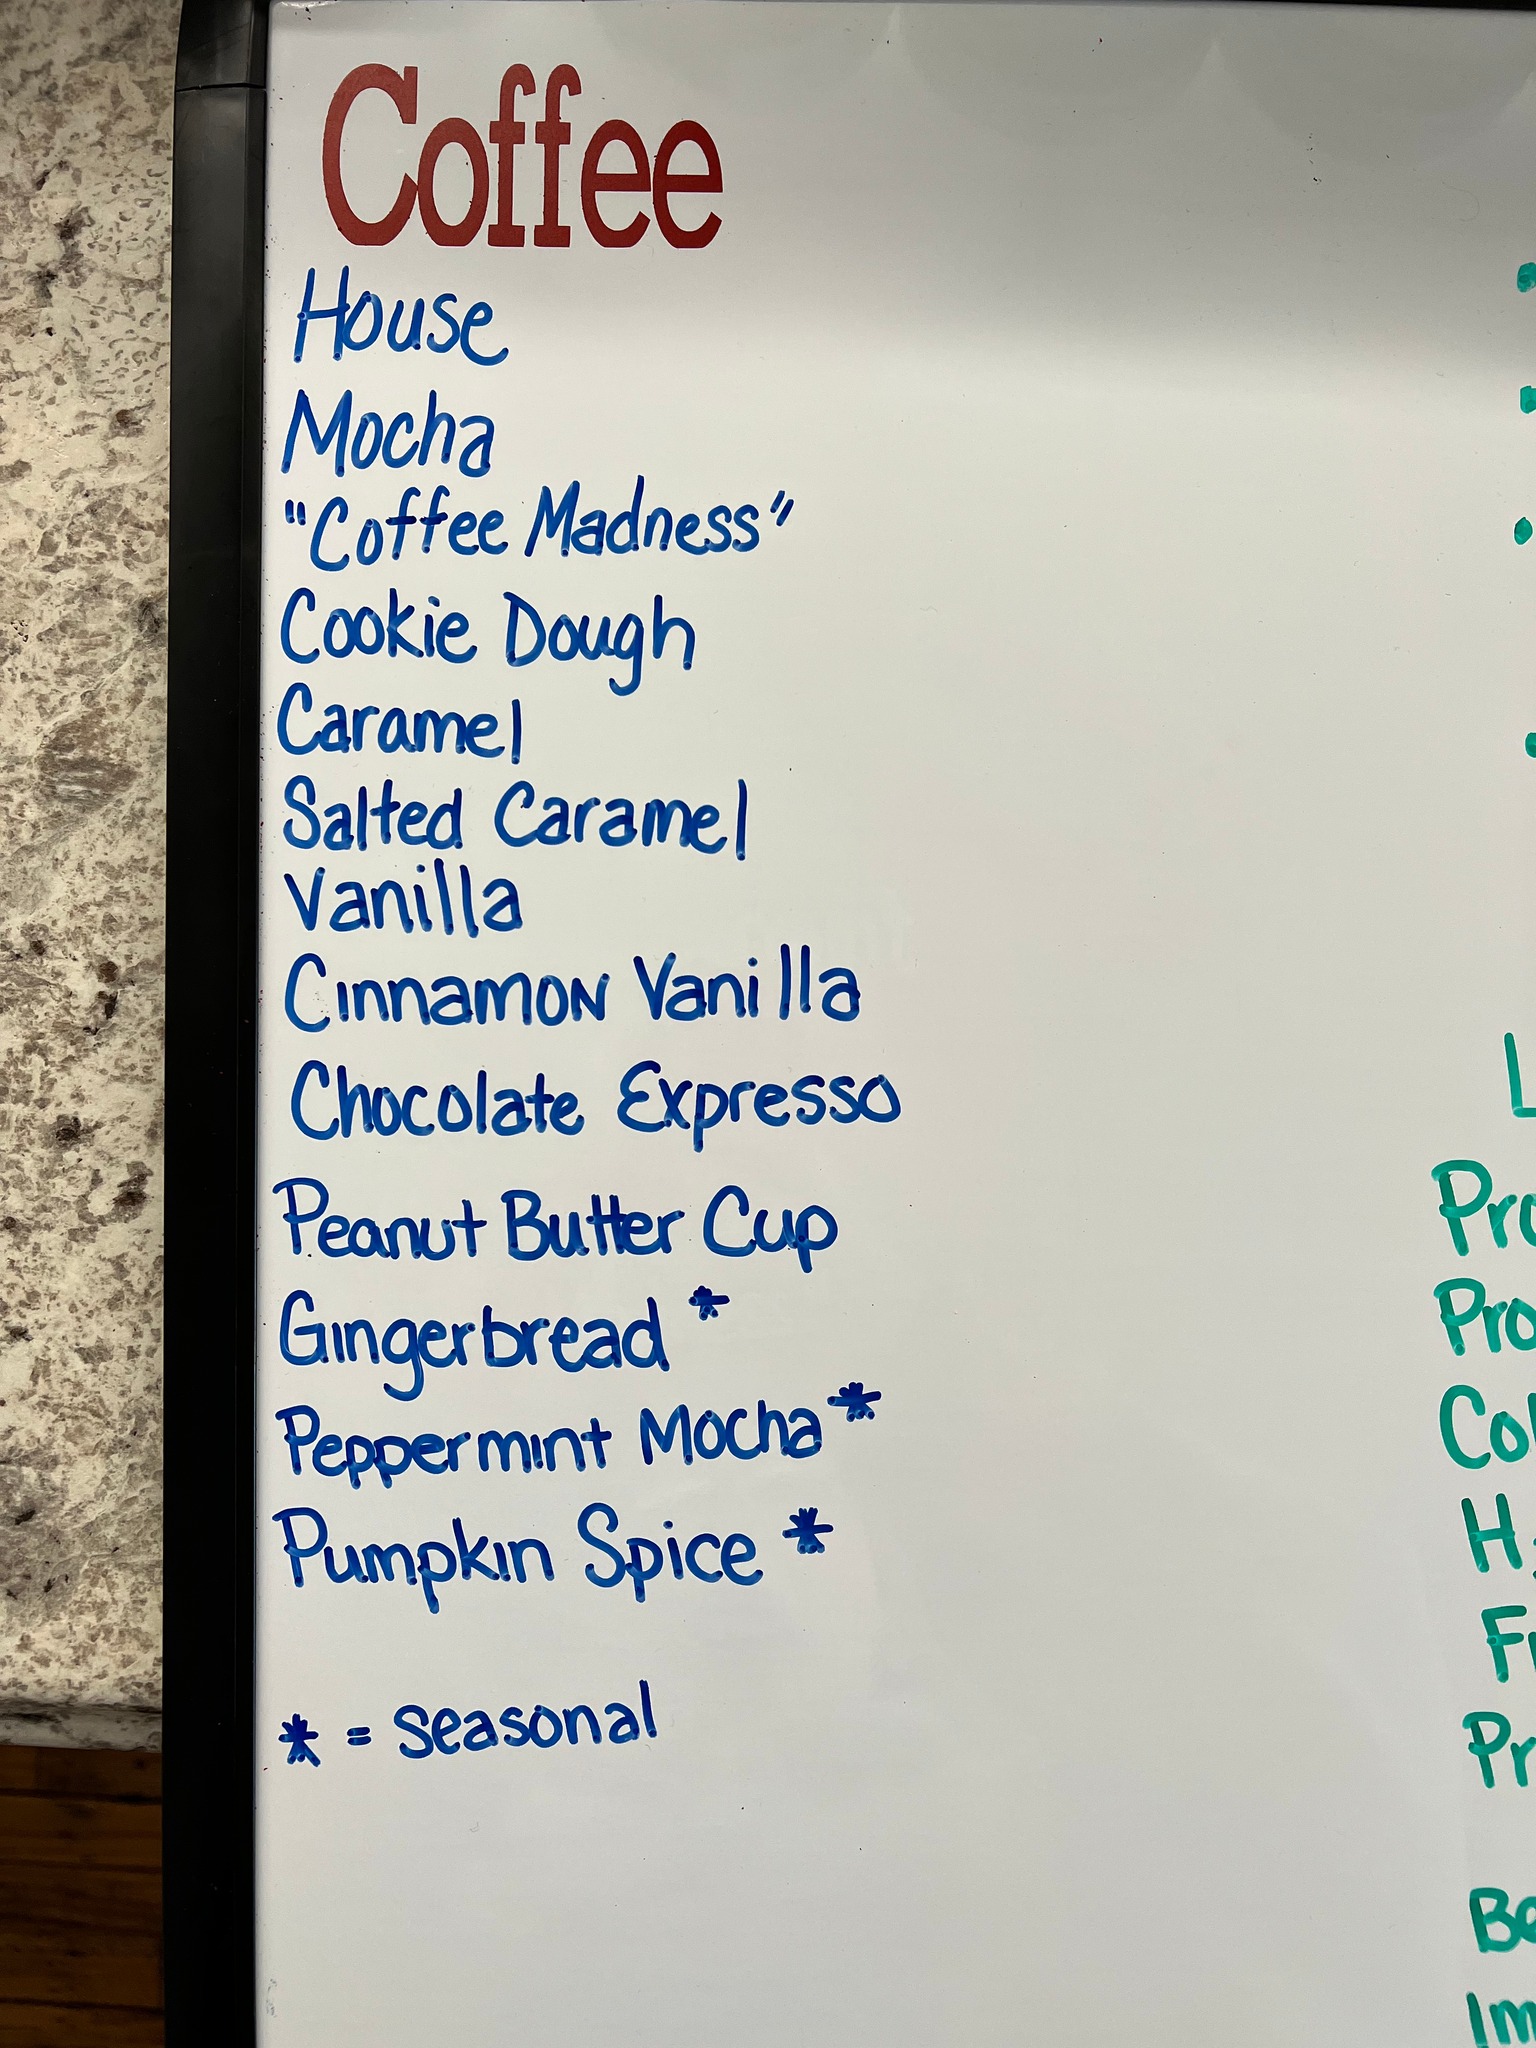 Coffee
House
Mocha
"Coffee Madness"
Cookie Dough
Caramel
Salted Caramel
Vanilla
Cinnamon Vanilla
Chocolate Expresso
Peanut Butter Cup
Gingerbread *
Peppermint Mocha *
Pumpkin Spice *
* = seasonal